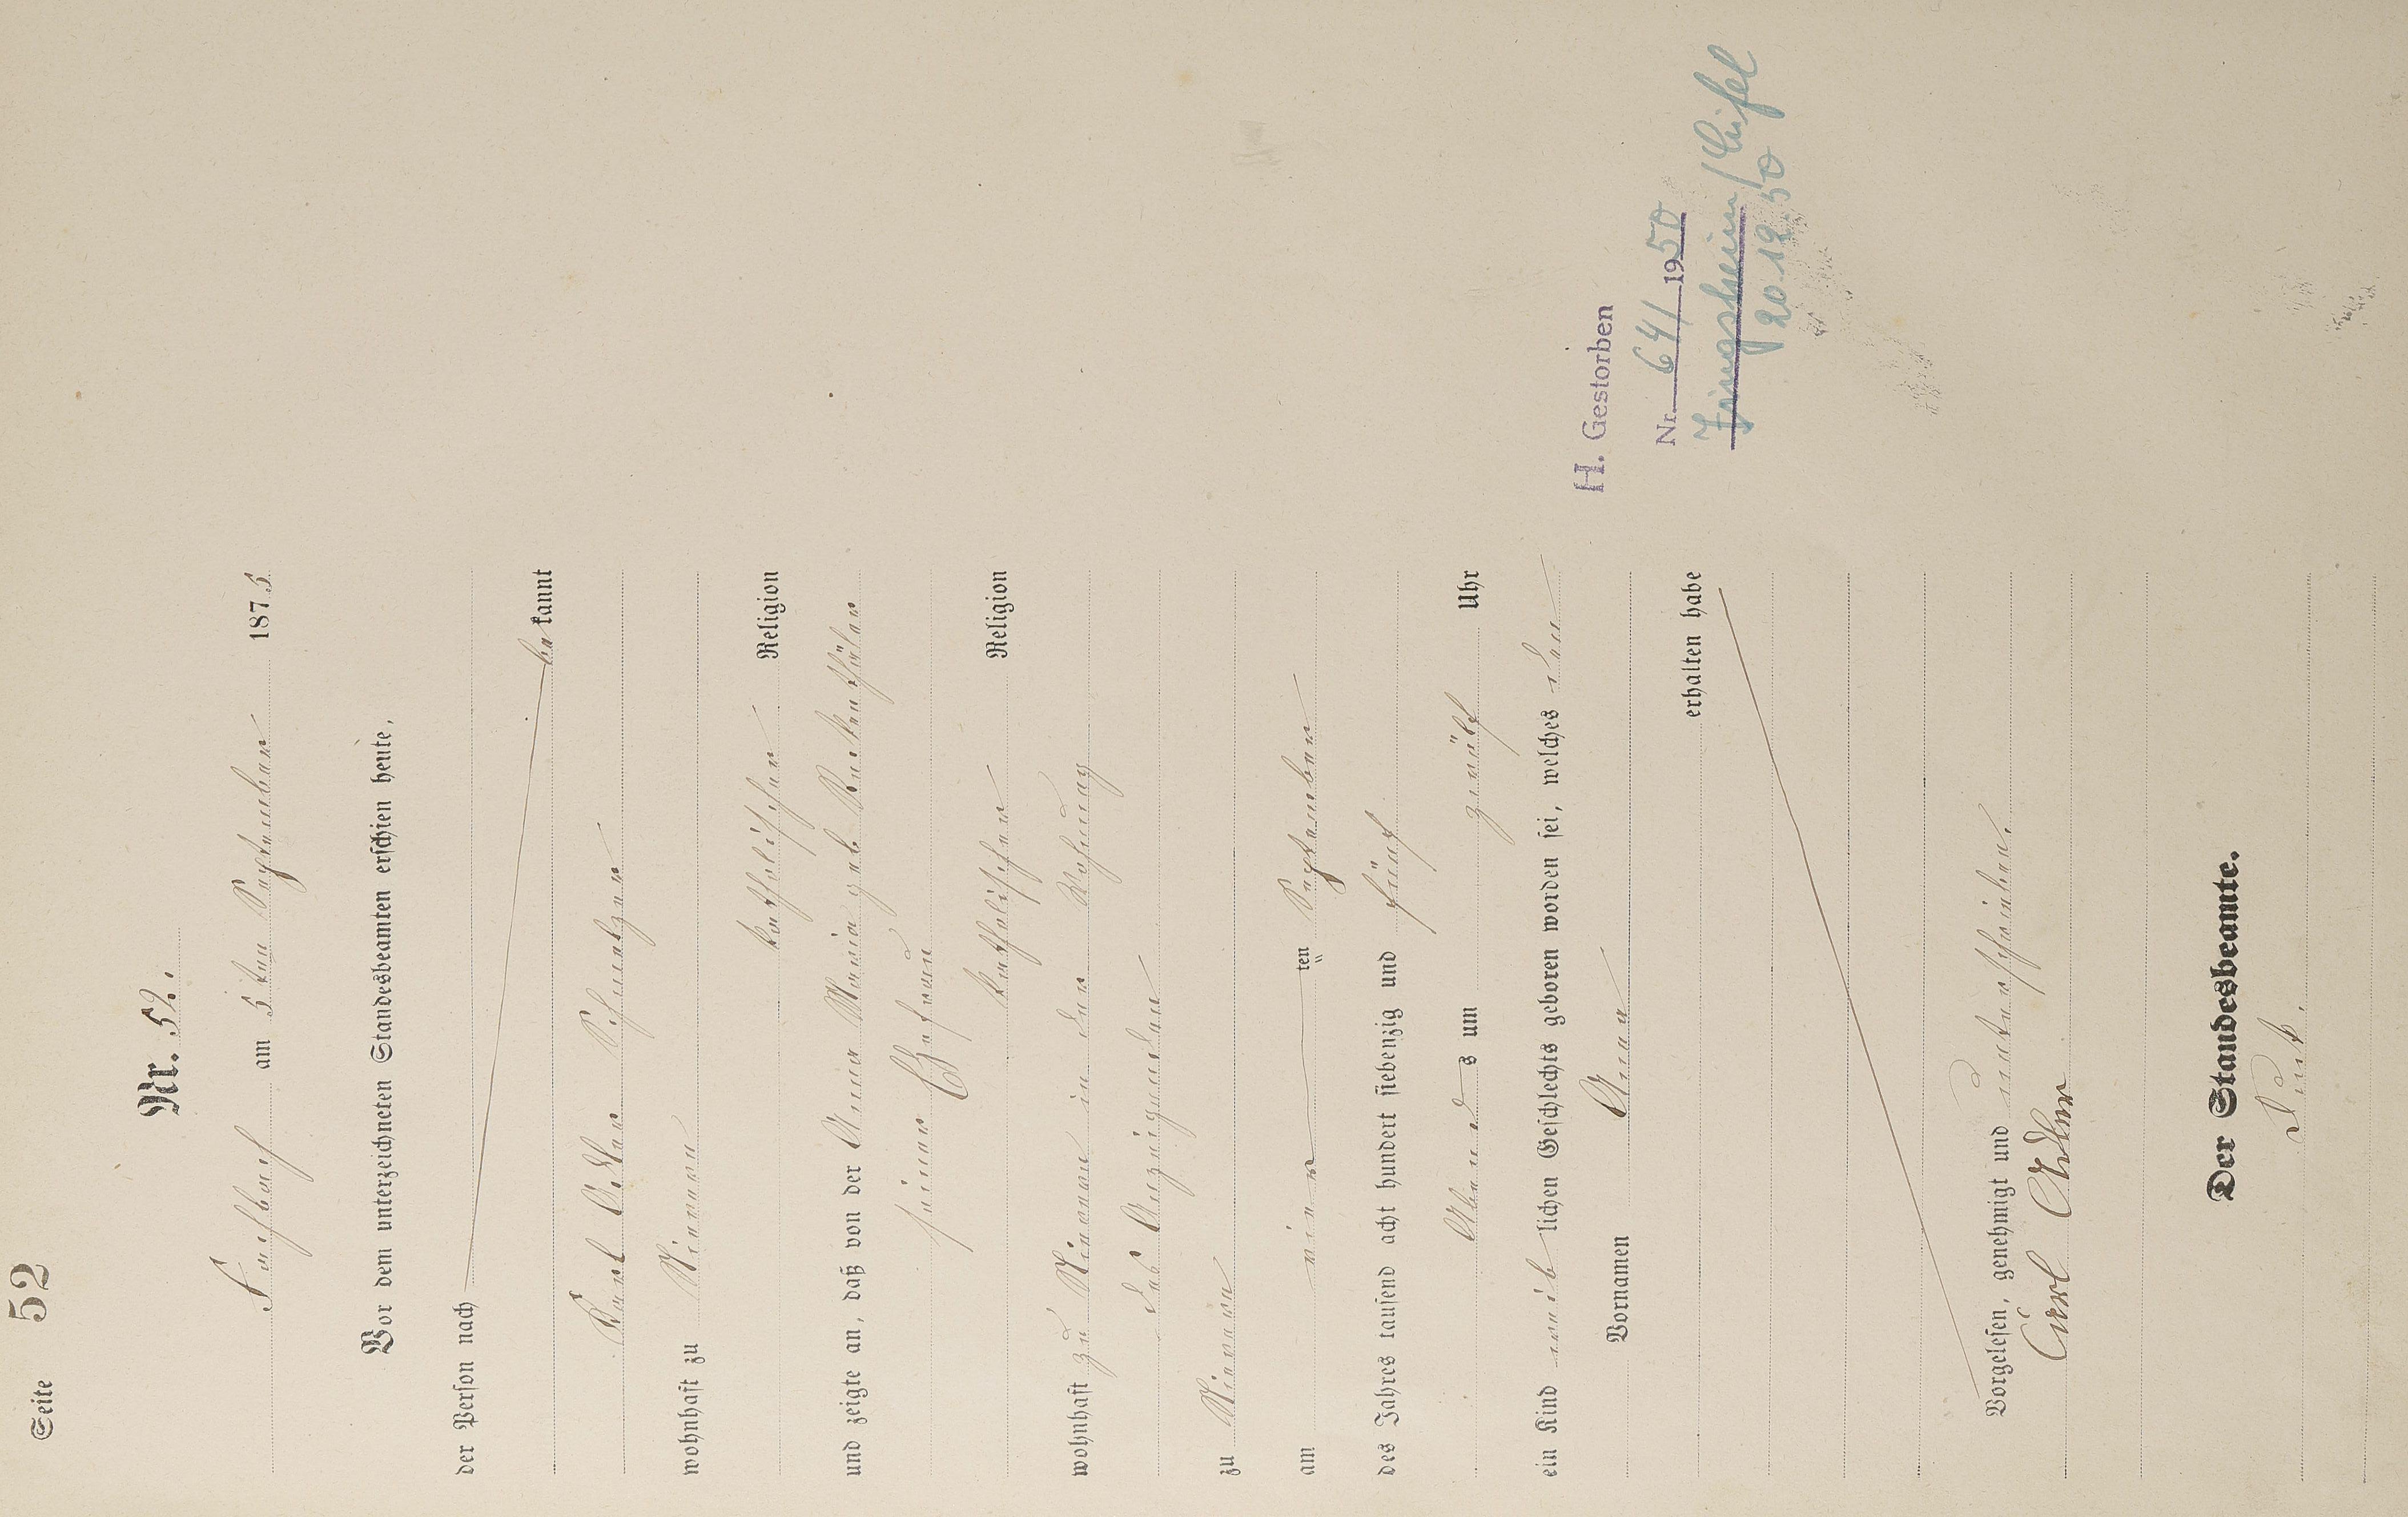 Seite 52
Nr. 52.
Fachbach am 5 ten September 1875
Vor dem unterzeichneten Standesbeamten erschien heute,
der Person nach
be kannt
Karl Adler
wohnhaft zu Nievern
katholischer Religion
und zeigte an, daß von der Anna Maria geb.
seiner Ehefrau
katholischer Religion
wohnhaft zu Nievern in der Wohnung
des Anzeigenden
zu Nievern
am vier ten September
des Jahres tausend acht hundert siebenzig und fünf
Abend s um zwölf Uhr
ein Kind weib lichen Geschlechts geboren worden sei, welches den
Vornamen Anna
erhalten habe
Vorgelesen, genehmigt und unterschrieben.
Carl Adler
Der Standesbeamte.
H. Gestorben
Nr. 641 1950
Zingsheim/Eifel
20.12.50